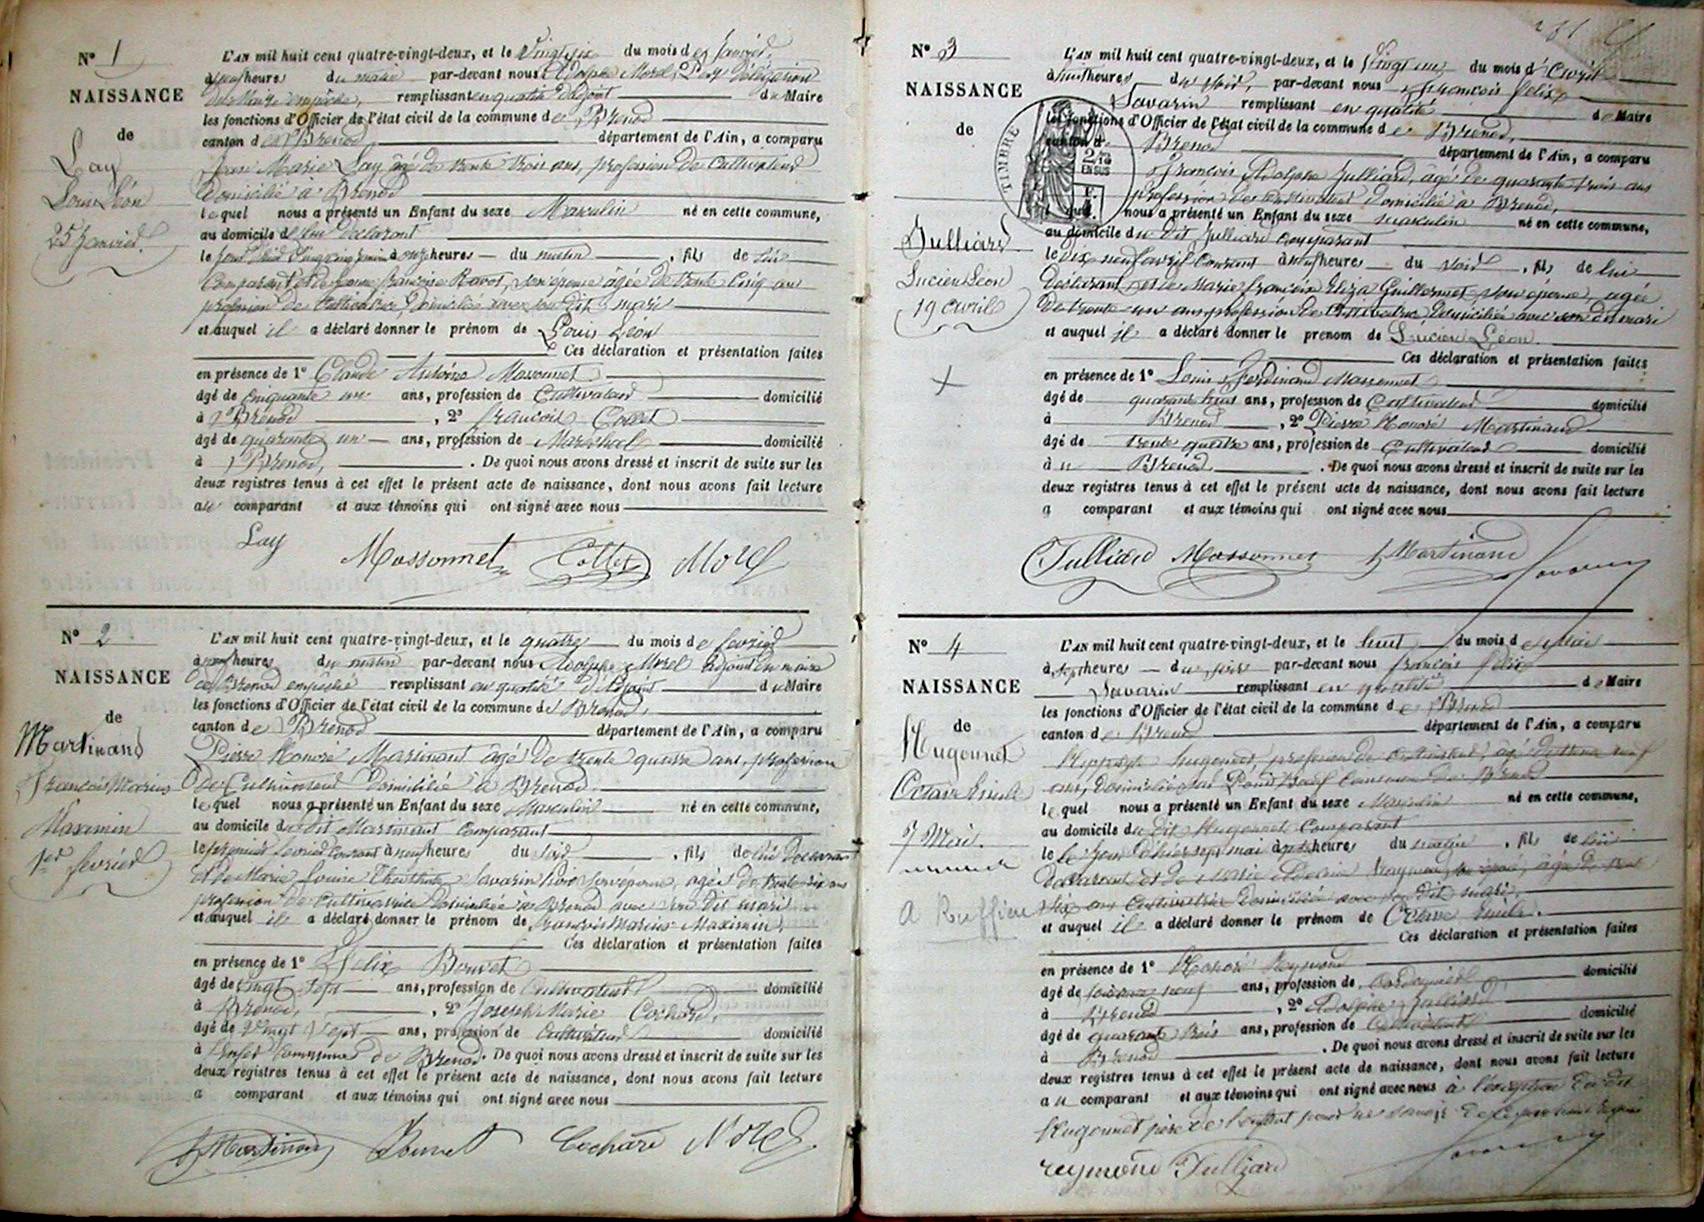 N° 1
NAISSANCE
de
Lay
Louis Léon
25 Janvier
L'AN mil huit cent quatre-vingt-deux, et le Vingt six du mois de Janvier,
à heures du matin par-devant nous Adolphe Morel Par délégation
du Maire empêché, remplissant en qualité d'adjoint du Maire
les fonctions d'Officier de l'état civil de la commune de Brenod
canton de Brenod département de l'Ain, a comparu
Jean Marie Lay âgé de trente trois ans, profession de Cultivateur
domicilié à Brenod
lequel nous a présenté un Enfant du sexe Masculin né en cette commune,
au domicile du declarant
le heures du matin, fils de lui
comparant et de françoise Ravot, son épouse âgée de trente cinq ans
profession de Cultivatrice, domiciliée avec son dit mari
et auquel il a déclaré donner le prénom de Louis Léon
Ces déclaration et présentation faites
en présence de 1° Claude Antoine Massonnet
âgé de Cinquante un ans, profession de Cultivateur domicilié
à Brenod, 2° françois Collet
âgé de quarante un ans, profession de Maréchal domicilié
à Brenod, . De quoi nous avons dressé et inscrit de suite sur les
deux registres tenus à cet effet le présent acte de naissance, dont nous avons fait lecture
au comparant et aux témoins qui ont signé avec nous
Lay Massonnet Collet Morel
N° 2
NAISSANCE
de
Martinand
François Marius
Maximin
1er fevrier
L'AN mil huit cent quatre-vingt-deux, et le quatre du mois de fevrier
à heures du matin par-devant nous Adolphe Morel Adjoint du maire
de Brenod empêché remplissant en qualité d'Adjoint du Maire
les fonctions d'Officier de l'état civil de la commune de Brenod,
canton de Brenod département de l'Ain, a comparu
Pierre Honoré Martinant âgé de trente quatre ans, profession
de Cultivateur domicilié à Brenod
lequel nous a présenté un Enfant du sexe Masculin né en cette commune,
au domicile du dit Martinant comparant
le premier fevrier courant à neuf heures du soir, fils de lui declarant
et de Marie Louise Savarin son épouse, agée de trente six ans
profession de Cultivatrice domiciliée à Brenod avec son dit mari
et auquel il a déclaré donner le prénom de françois Marius Maximin,
Ces déclaration et présentation faites
en présence de 1° Felix Bonnet
âgé de vingt sept ans, profession de Cultivateur domicilié
à Brenod, 2° Joseph Marie Cochard,
âgé de Vingt sept ans, profession de Cultivateur domicilié
à commune de Brenod. De quoi nous avons dressé et inscrit de suite sur les
deux registres tenus à cet effet le présent acte de naissance, dont nous avons fait lecture
a comparant et aux témoins qui ont signé avec nous
Martinand Bonnet Cochard Morel
N° 3
NAISSANCE
de
Julliard
Lucien Léon
19 avril
L'AN mil huit cent quatre-vingt-deux, et le Vingt un du mois d'Avril
à heures du soir, par-devant nous françois felix
Savarin remplissant en qualité de Maire
les fonctions d'Officier de l'état civil de la commune de Brenod,
canton d Brenod département de l'Ain, a comparu
TIMBRE
françois Adolphe Julliard, âgé de quarante trois ans
profession de cultivateur domicilié à Brenod,
lequel nous a présenté un Enfant du sexe masculin né en cette commune,
au domicile du dit Julliard comparant
le dix neuf avril courant à heures du soir, fils de lui
déclarant et de Marie françoise Eliza Guillermet son épouse, agée
de trente un ans profession de Cultivatrice domiciliée avec son dit mari
et auquel il a déclaré donner le prenom de Lucien Léon.
Ces déclaration et présentation faites
en présence de 1° Louis Ferdinand Massonnet
âgé de quarante trois ans, profession de Cultivateur domicilié
à Brenod, 2° Pierre Honoré Martinand
âgé de trente quatre ans, profession de Cultivateur domicilié
à Brenod. De quoi nous avons dressé et inscrit de suite sur les
deux registres tenus à cet effet le présent acte de naissance, dont nous avons fait lecture
a comparant et aux témoins qui ont signé avec nous
Julliard Massonnet Martinand Savarin
N° 4
NAISSANCE
de
Hugonnet
Octave Emile
7 Mai.
a Ruffieu
L'AN mil huit cent quatre-vingt-deux, et le huit du mois de Mai
à sept heures du soir par-devant nous françois felix
Savarin remplissant en qualité de Maire
les fonctions d'Officier de l'état civil de la commune de Brenod
canton de Brenod département de l'Ain, a comparu
Hippolyte hugonnet, profession de cultivateur, agé de trente neuf
ans, domicilié commune de Brenod
lequel nous a présenté un Enfant du sexe Masculin né en cette commune,
au domicile du dit Hugonnet comparant
le jour d'hier sept mai à heures du matin, fils de lui
declarant et de Marie Reymond, son épouse, âgée de trente
six ans Cultivatrice domiciliée avec son dit mari,
et auquel il a déclaré donner le prénom de Octave Emile.
Ces déclaration et présentation faites
en présence de 1° Honoré Reymond
âgé de soixante neuf ans, profession de Cordonnier domicilié
à Brenod, 2° Adolphe Julliard
âgé de quarante trois ans, profession de Cultivateur domicilié
à Brenod. De quoi nous avons dressé et inscrit de suite sur les
deux registres tenus à cet effet le présent acte de naissance, dont nous avons fait lecture
au comparant et aux témoins qui ont signé avec nous à l'exception du dit
Hugonnet père de l'enfant pour ne savoir de ce par nous requis
reymond Julliard Savarin